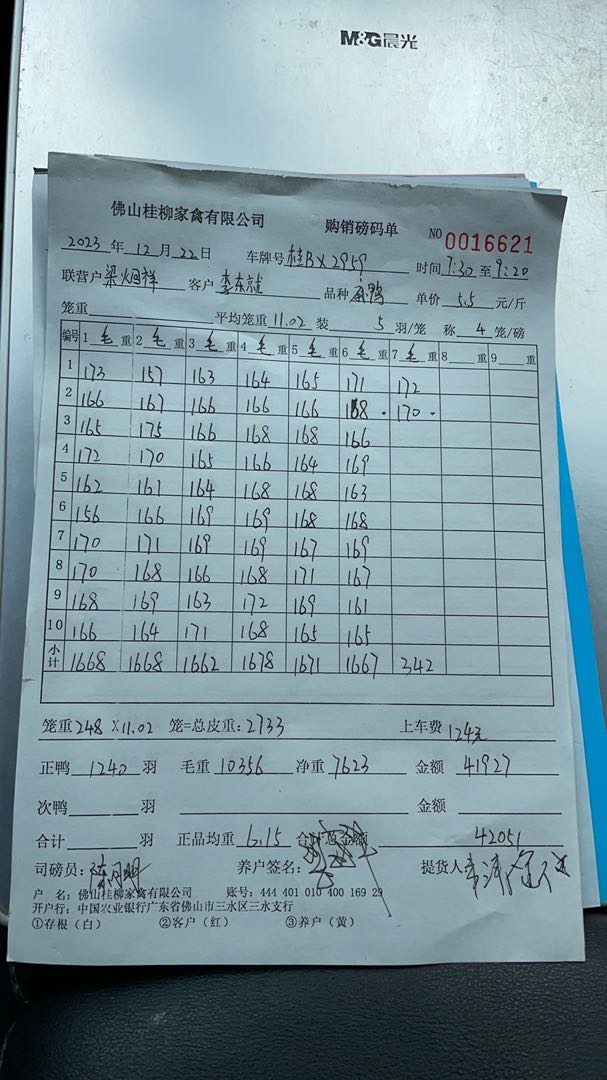 M&G晨光
佛山桂柳家禽有限公司 购销磅码单 NO 0016621
2023年 12月 22日 车牌号 桂BX2959 时间 7:30 至 9:20
联营户 梁烟祥 客户 李东 品种 鸭 单价 5.5 元/斤
笼重 平均笼重 11.02 装 5 羽/笼 称 4 笼/磅
编号 1 毛 重 2 毛 重 3 毛 重 4 毛 重 5 毛 重 6 毛 重 7 毛 重 8 重 9 重
1 173 157 163 164 165 171 172
2 166 167 166 166 166 168 170
3 165 175 166 168 168 166
4 172 170 165 166 164 169
5 162 161 164 168 168 163
6 156 166 169 169 168 168
7 170 171 169 169 167 169
8 170 168 166 168 171 167
9 168 169 163 172 169 161
10 166 164 171 168 165 165
小计 1668 1668 1662 1678 1671 1667 342
笼重 248 X 11.02 笼=总皮重: 2733 上车费 124元
正鸭 1240 羽 毛重 10356 净重 7623 金额 41927
次鸭 羽 金额
合计 羽 正品均重 6.15 合计总金额 42051
司磅员: 养户签名: 提货人
户 名: 佛山桂柳家禽有限公司 账号: 444 401 010 400 169 29
开户行: 中国农业银行广东省佛山市三水区三水支行
①存根（白） ②客户（红） ③养户（黄）